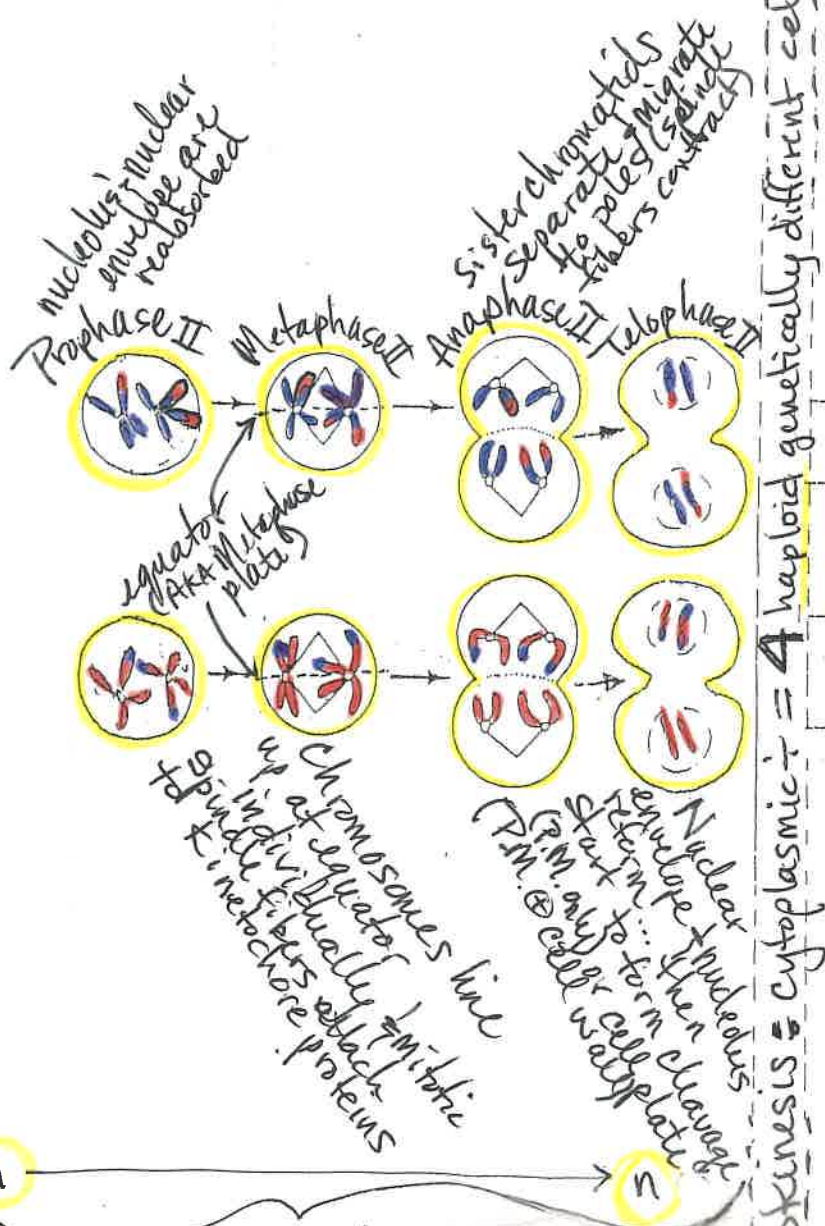 nucleolus + nuclear
envelope are
reabsorbed
Prophase II
Metaphase II
Anaphase II
Telophase II
sister chromatids
separate + migrate
to poles (spindle
fibers contract)
equator
(AKA Metaphase
plate)
chromosomes line
up at equator
individually & mitotic
spindle fibers attach
to kinetochore proteins
Nuclear
envelope + nucleolus
reform... then
start to form cleavage
(P.M. only) or cell plate
(P.M. ⊕ cell wall)
n
kinesis = cytoplasmic ÷ = 4 haploid genetically different cel